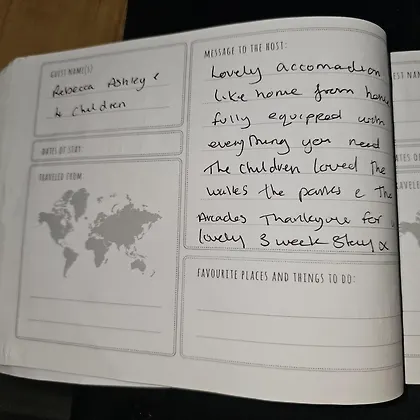 GUEST NAME(S)
Rebecca Ashley &
4 children
DATES OF STAY
TRAVELED FROM
MESSAGE TO THE HOST:
Lovely accomadion
like home from home
fully equipped with
everything you need
The children loved the
walks the parks & The
Arcades Thankyou for
lovely 3 week stay x
FAVOURITE PLACES AND THINGS TO DO:
EST NAM